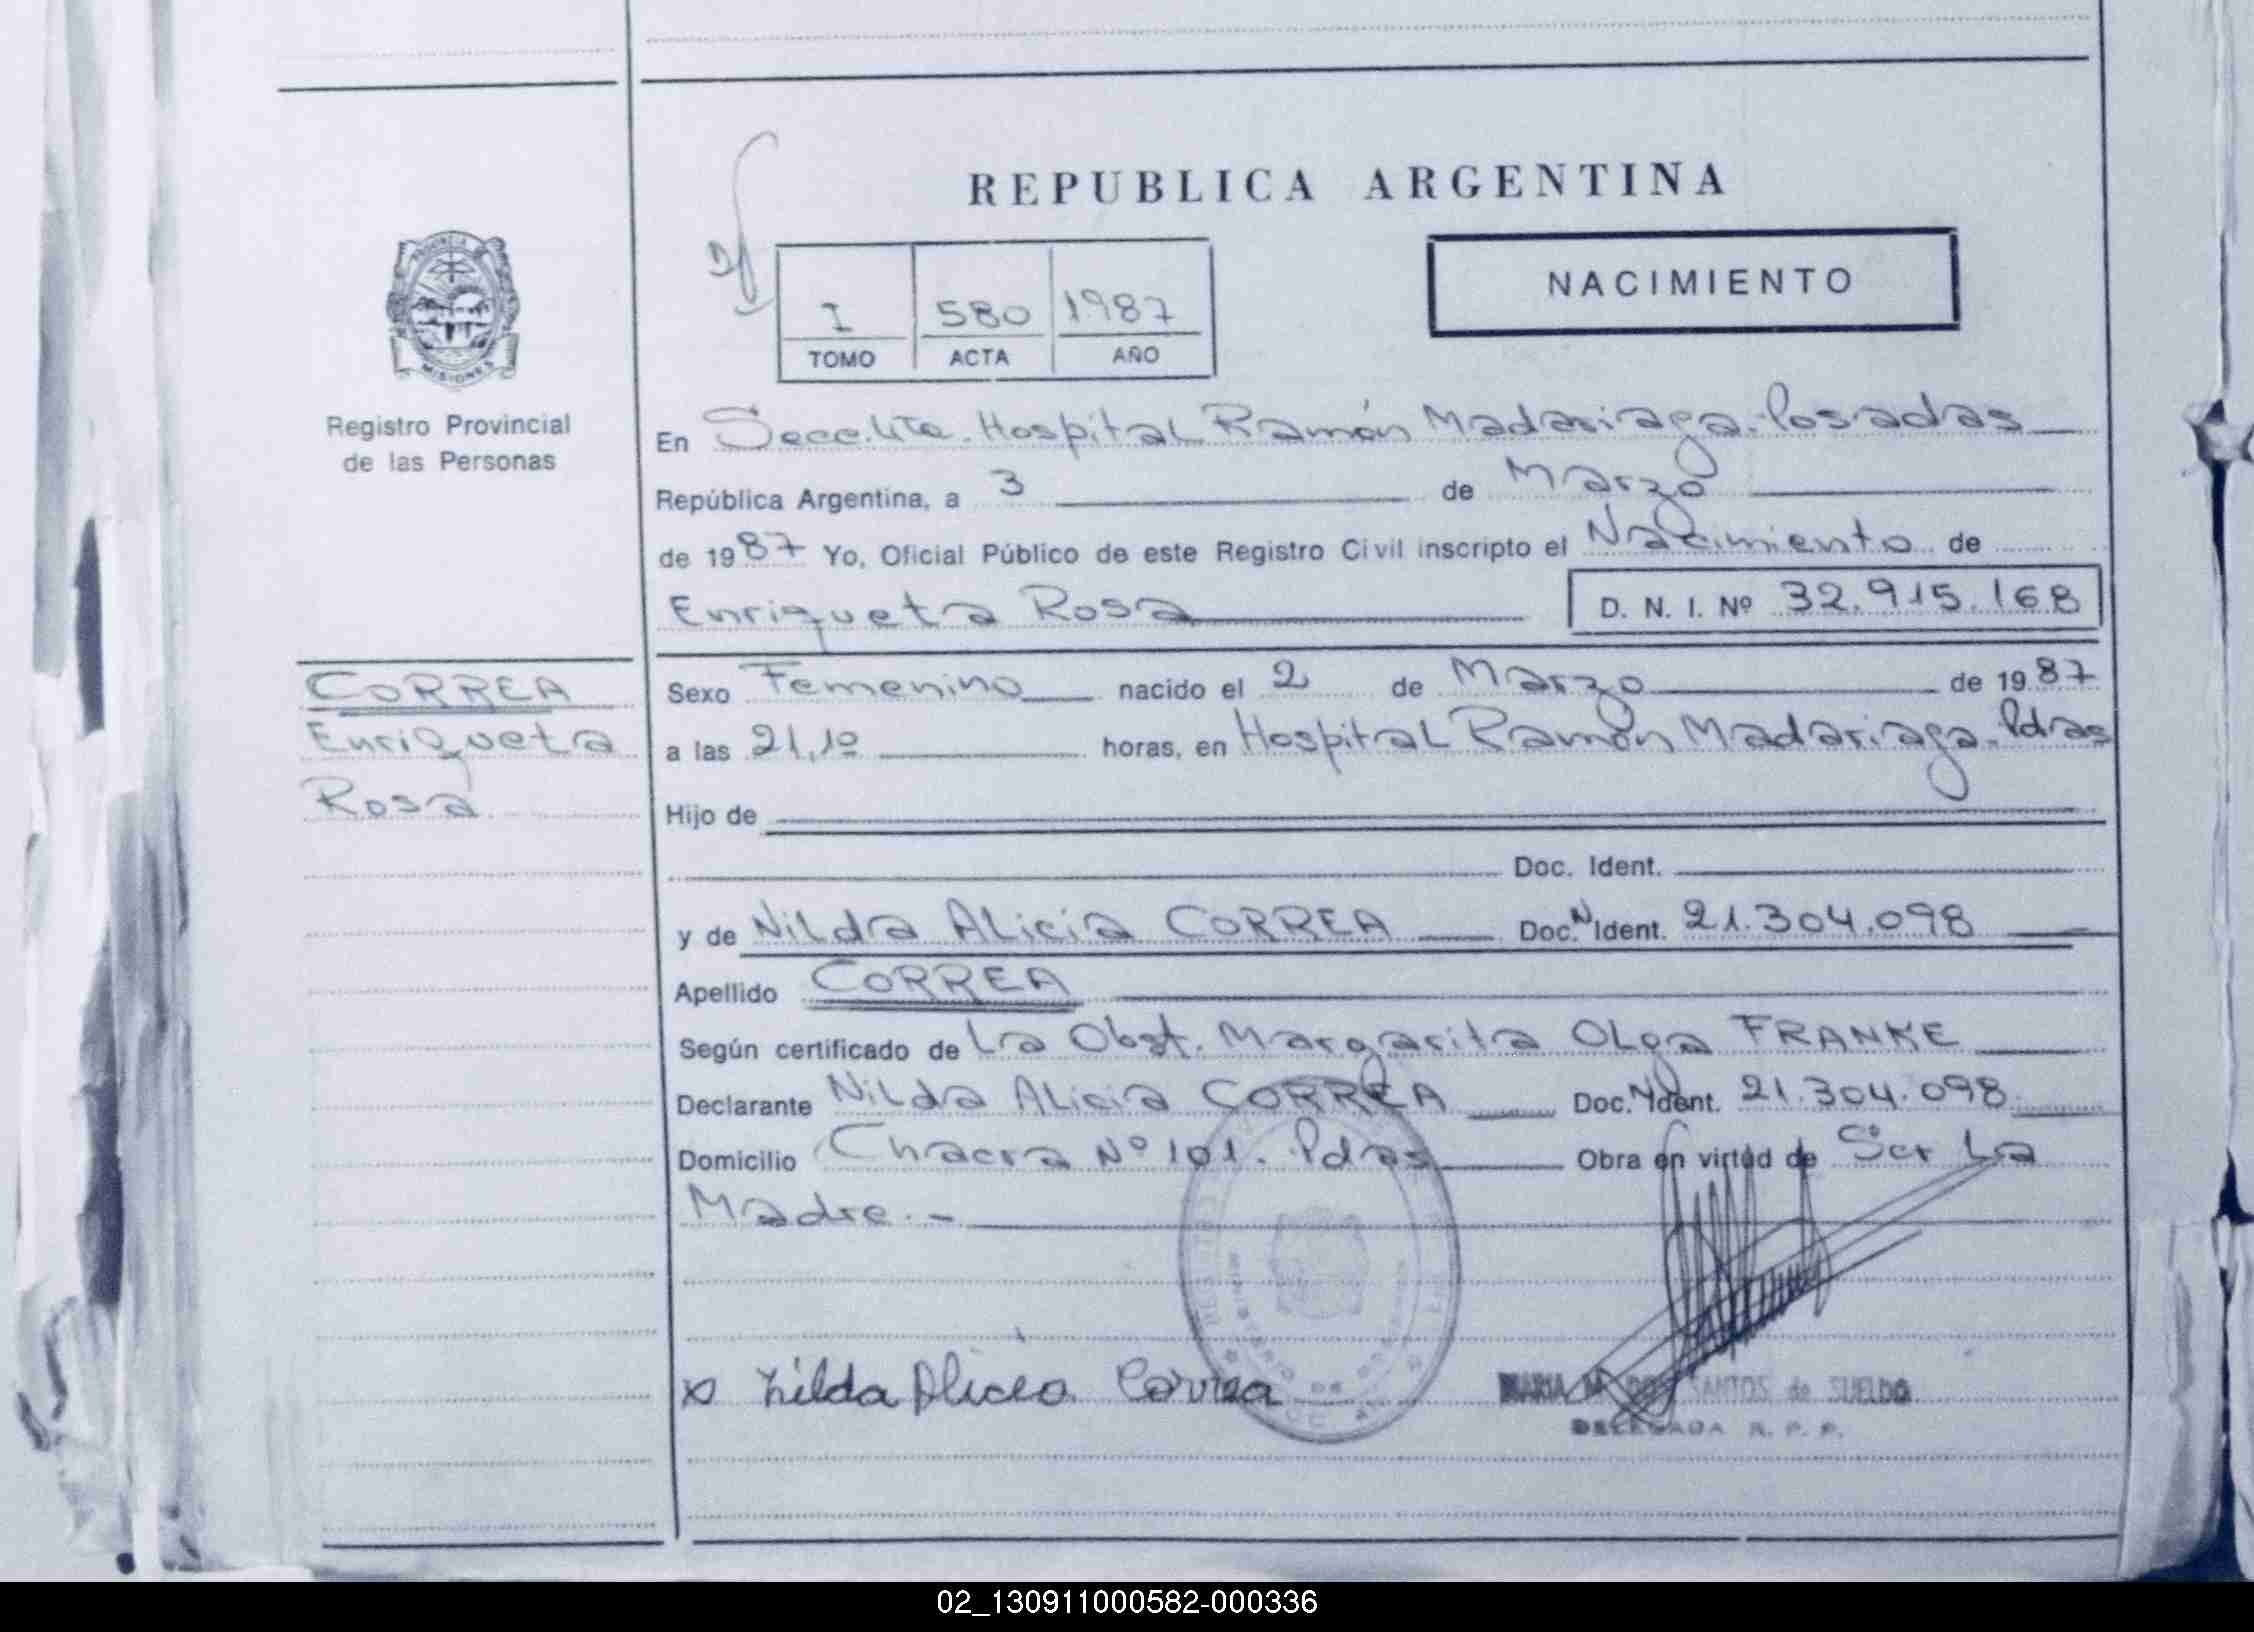 REPUBLICA ARGENTINA
NACIMIENTO
I 580 1987
TOMO ACTA AÑO
PROVINCIA
MISIONES
Registro Provincial
de las Personas
En Secc. 4ta. Hospital Ramón Madariaga. Posadas
República Argentina, a 3 de Marzo
de 1987 Yo, Oficial Público de este Registro Civil inscripto el Nacimiento de
Enriqueta Rosa D. N. I. Nº 32.915.168
CORREA
Enriqueta
Rosa
Sexo Femenino nacido el 2 de Marzo de 1987
a las 21,10 horas, en Hospital Ramón Madariaga. Pdas
Hijo de
Doc. Ident.
y de Nilda Alicia CORREA Doc. N Ident. 21.304.098
Apellido CORREA
Según certificado de La Obst. Margarita Olga FRANKE
Declarante Nilda Alicia CORREA Doc. N Ident. 21.304.098
Domicilio Chacra Nº 101. Pdas Obra en virtud de Ser La
Madre.-
x Nilda Alicia Correa
MARIA M. DOS SANTOS de SUELDO
DELEGADA R. P. P.
02_130911000582-000336